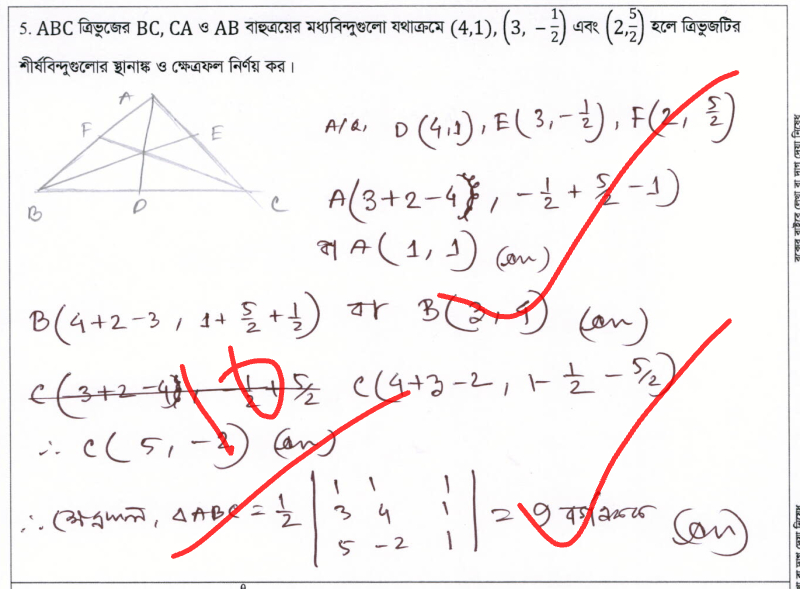 5. ABC ত্রিভুজের BC, CA ও AB বাহুত্রয়ের মধ্যবিন্দুগুলো যথাক্রমে (4,1), (3, −1/2) এবং (2, 5/2) হলে ত্রিভুজটির
শীর্ষবিন্দুগুলোর স্থানাঙ্ক ও ক্ষেত্রফল নির্ণয় কর।
A
F E
B D C
D(4,1), E(3, −1/2), F(2, 5/2)
A(3+2−4, −1/2 + 5/2 − 1)
বা A(1, 1) (Ans)
B(4+2−3, 1+ 5/2 + 1/2) বা B(3, 4) (Ans)
C(3+2−4, −1/2 + 5/2 C(4+3−2, 1− 1/2 − 5/2)
10
∴ C(5, −2) (Ans)
∴ ক্ষেত্রফল, ΔABC = 1/2 | 1 1 1 | = 9 বর্গ একক (Ans)
3 4 1
5 −2 1